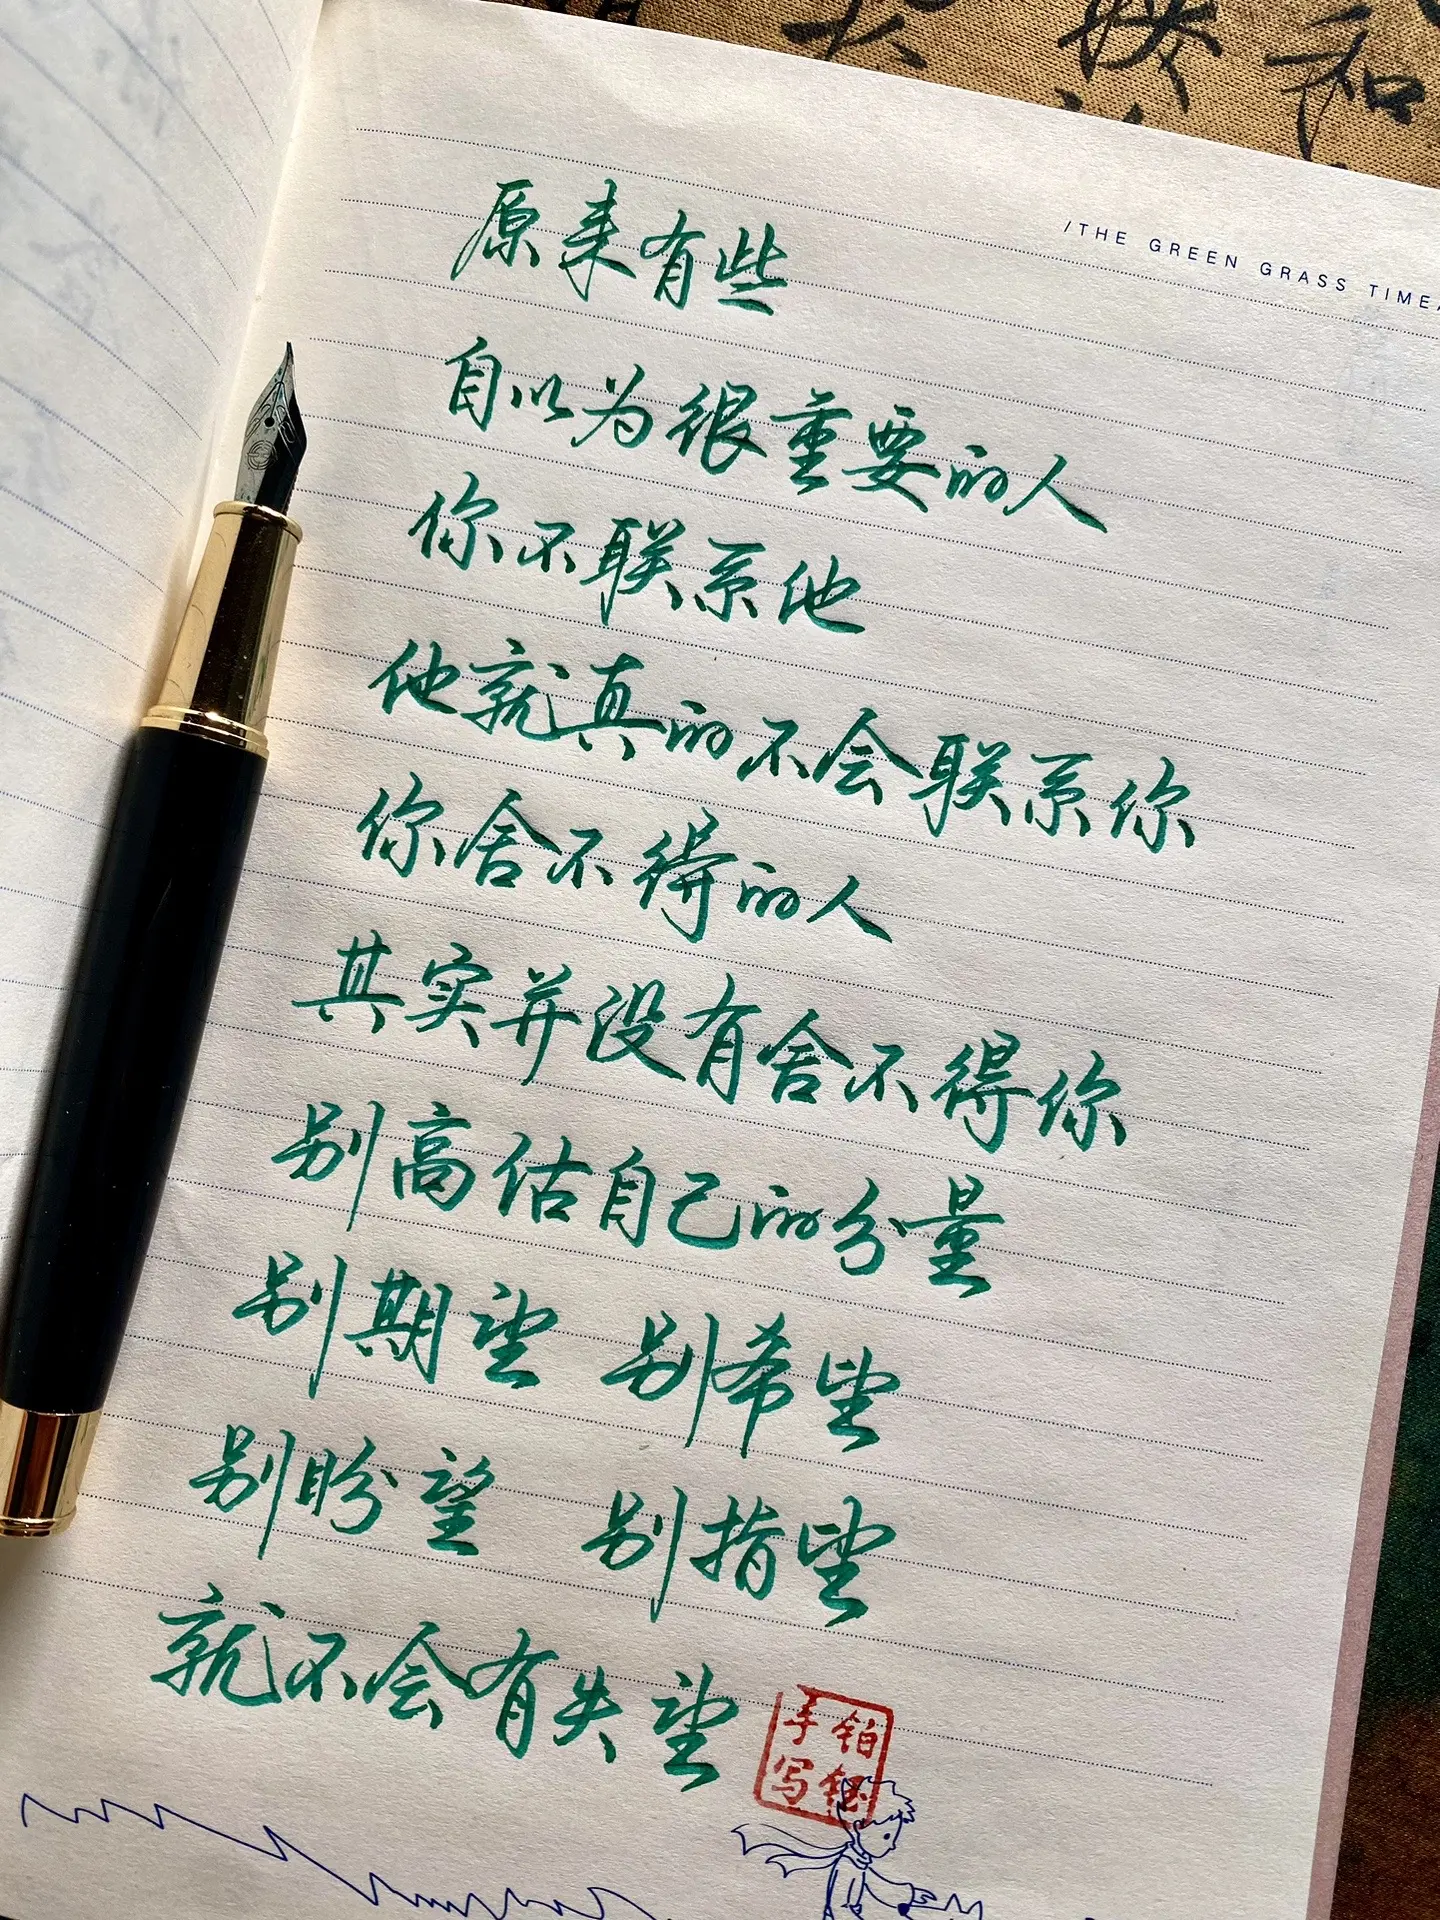 /THE GREEN GRASS TIME
原来有些
自以为很重要的人
你不联系他
他就真的不会联系你
你舍不得的人
其实并没有舍不得你
别高估自己的分量
别期望 别希望
别盼望 别指望
就不会有失望
铂钰
手写